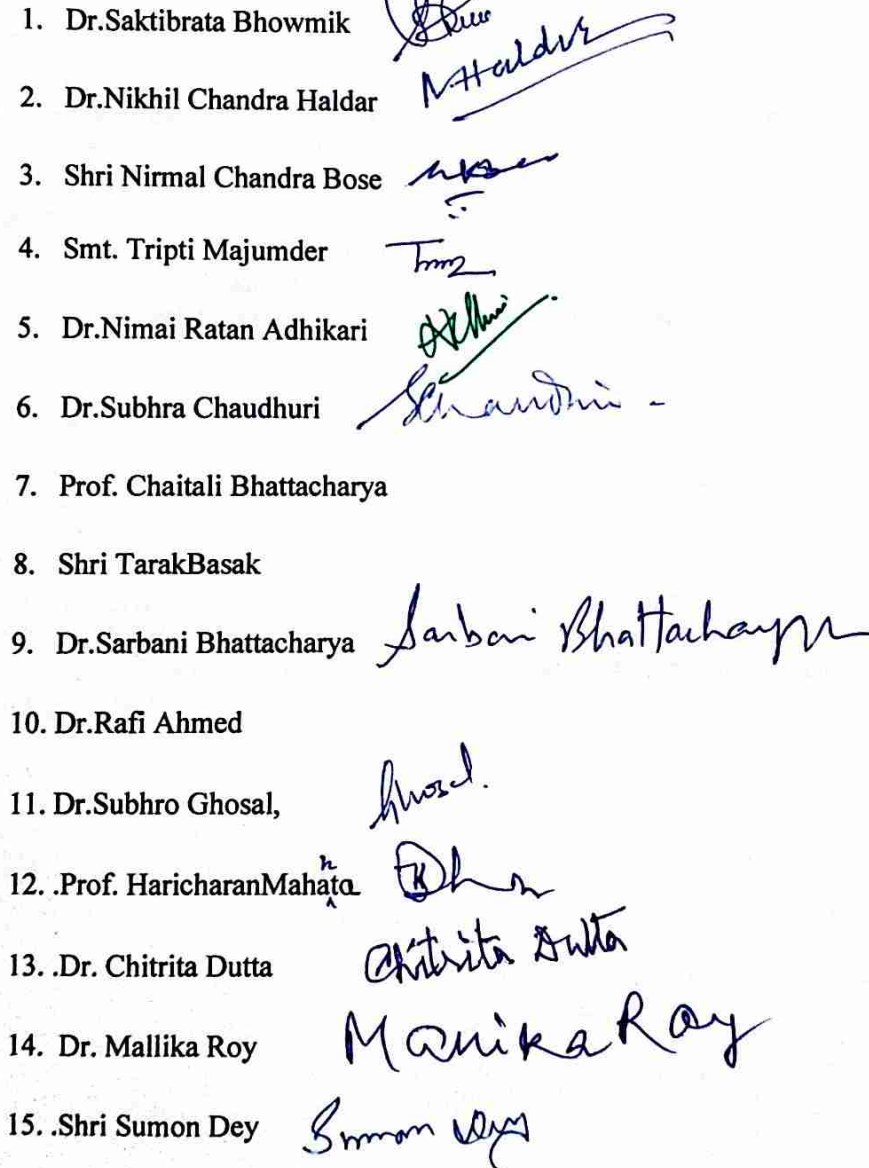 1. Dr.Saktibrata Bhowmik
2. Dr.Nikhil Chandra Haldar N.Haldar
3. Shri Nirmal Chandra Bose
4. Smt. Tripti Majumder
5. Dr.Nimai Ratan Adhikari
6. Dr.Subhra Chaudhuri SChaudhuri
7. Prof. Chaitali Bhattacharya
8. Shri TarakBasak
9. Dr.Sarbani Bhattacharya Sarbani Bhattacharyya
10. Dr.Rafi Ahmed
11. Dr.Subhro Ghosal, Ghosal.
12. .Prof. HaricharanMahata
13. .Dr. Chitrita Dutta Chitrita Dutta
14. Dr. Mallika Roy Mallika Roy
15. .Shri Sumon Dey Sumon Dey